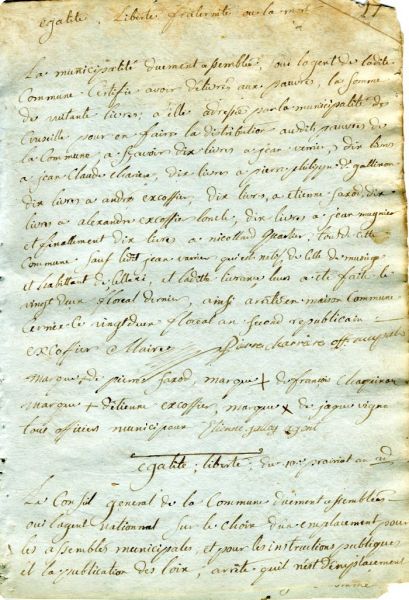 egalité, Liberté fraternité ou la mort
La municipalité duement assemblée, oui l'agent de ladite
Commune certifie avoir délivré aux pauvres, la somme
de nutante livres, a elle adressée par la municipalité de
pour en faire la distribution audits pauvres de
la Commune, a sçavoir dix livres a jean varier, dix livres
a jean Claude charier, dix livres a pierre philippe de
dix livres a andré excoffier, dix livres, a etienne saxod, dix
livres a alexandre excoffier loncle, dix livres a jean mugnier
et finallement dix livres a nicollaud quartier, tous de ditte
Commune sauf ledit jean varier qui est natif de
et habittant de et laditte livrance leurs a été faite le
vingt deux floreal dernier, ainsi arrêté en maison Commune
ce vingt deux floreal an second republicain
excoffier Maire
marque + de pierre saxod, marque + de françois
marque + d'etienne excoffier, marque x de jaque vigne
tous officiers municipaux Etienne agent
egalité, liberté, du 10e prairial an
Le Conseil general de la Commune duement assemblée
oui l'agent nationnal sur le choix d'un emplacement pour
les assemblés municipales, et pour les instructions publiques
et la publication des loix, arrête qu'il n'est d'emplacement